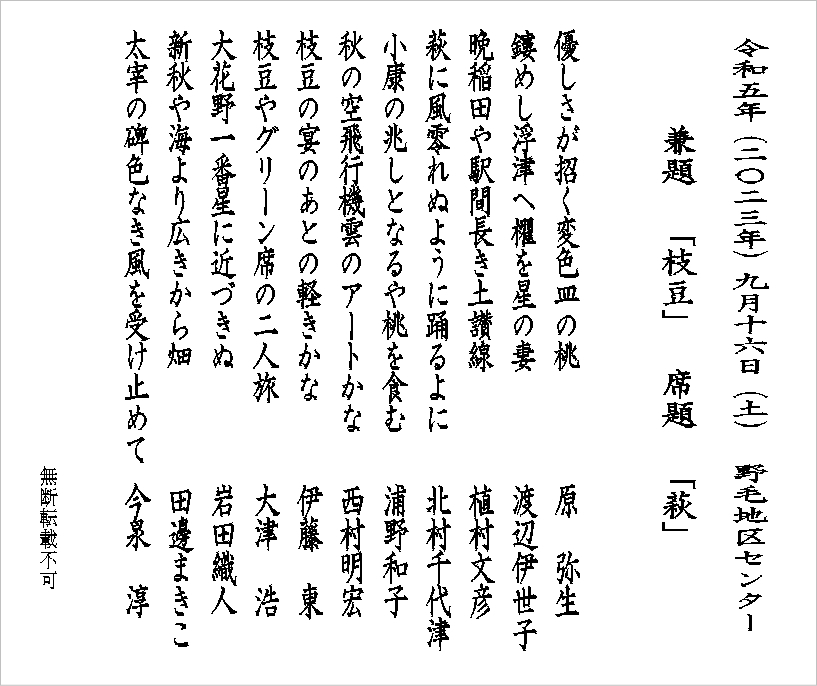 令和五年（二〇二三年）九月十六日（土）　野毛地区センター
兼題　「枝豆」　席題　「萩」
優しさが招く変色皿の桃　原　弥生
鏤めし浮津へ櫂を星の妻　渡辺伊世子
晩稲田や駅間長き土讃線　植村文彦
萩に風零れぬように踊るよに　北村千代津
小康の兆しとなるや桃を食む　浦野和子
秋の空飛行機雲のアートかな　西村明宏
枝豆の宴のあとの軽きかな　伊藤　東
枝豆やグリーン席の二人旅　大津　浩
大花野一番星に近づきぬ　岩田織人
新秋や海より広きから畑　田邊まきこ
太宰の碑色なき風を受け止めて　今泉　淳
無断転載不可